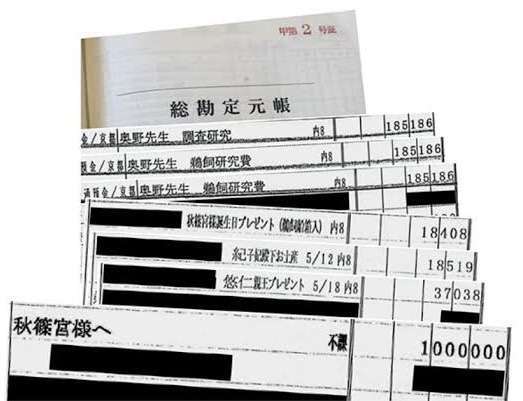 甲第 2 号証
総勘定元帳
金/京都 奥野先生 調査研究 内8 185186
預金/京都 奥野先生 鵜飼研究費 内8 185186
通預金/京都 奥野先生 鵜飼研究費 内8 185186
秋篠宮様誕生日プレゼント 内8 18408
紀子妃殿下お土産 5/12 内8 18519
悠仁親王プレゼント 5/18 内8 37038
秋篠宮様へ 不課 1000000